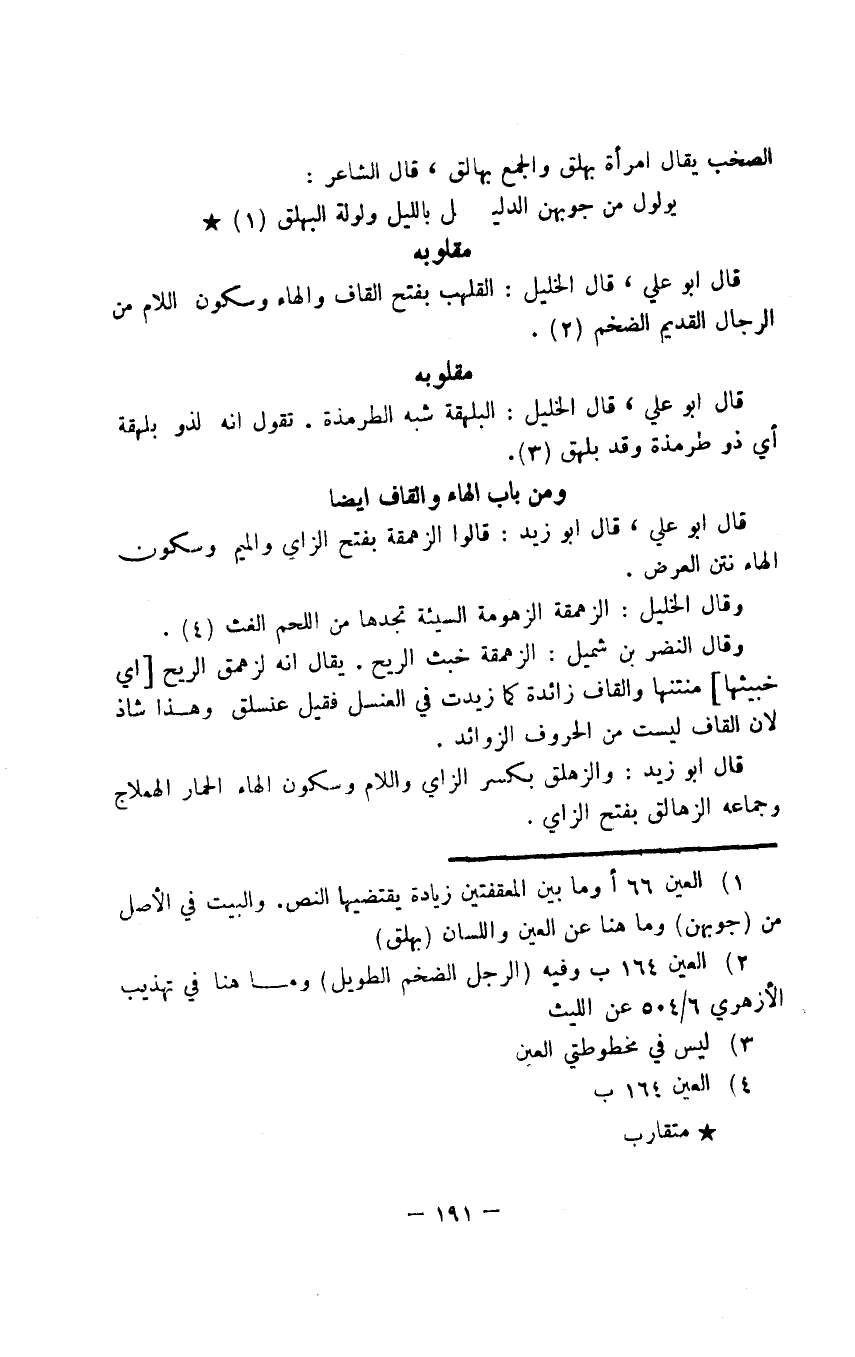 الصخب يقال امرأة بهلق والجمع بهالق ، قال الشاعر :
يولول من جوبهن الدليـ ـل بالليل ولولة البهلق (١) ★
مقلوبه
قال ابو علي ، قال الخليل : القلهب بفتح القاف والهاء وسكون اللام من
الرجال القديم الضخم (٢) .
مقلوبه
قال ابو علي ، قال الخليل : البلهقة شبه الطرمذة . تقول انه لذو بلهقة
أي ذو طرمذة وقد بلهق (٣).
ومن باب الهاء والقاف ايضا
قال ابو علي ، قال ابو زيد : قالوا الزهمقة بفتح الزاي والميم وسكون
الهاء نتن العرض .
وقال الخليل : الزهمقة الزهومة السيئة تجدها من اللحم الغث (٤) .
وقال النضر بن شميل : الزهمقة خبث الريح . يقال انه لزهمق الريح [اي
خبيثها] منتنها والقاف زائدة كما زيدت في العنسل فقيل عنسلق وهــذا شاذ
لان القاف ليست من الحروف الزوائد .
قال ابو زيد : والزهلق بكسر الزاي واللام وسكون الهاء الحمار الهملاج
وجماعه الزهالق بفتح الزاي .
١) العين ٦٦ أ وما بين المعقفتين زيادة يقتضيها النص. والبيت في الأصل
من (جوبهن) وما هنا عن العين واللسان (بهلق)
٢) العين ١٦٤ ب وفيه (الرجل الضخم الطويل) ومــا هنا في تهذيب
الأزهري ٥٠٤/٦ عن الليث
٣) ليس في مخطوطتي العين
٤) العين ١٦٤ ب
★ متقارب
— ١٩١ —